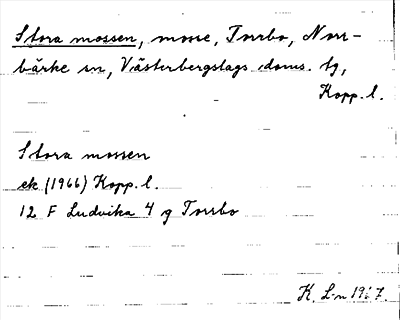 Stora mossen, mosse, Torrbo, Norr-
bärke sn, Västerbergslags doms. tg,
Kopp. l.
Stora mossen
ek (1966) Kopp. l.
12 F Ludvika 4 g Torrbo
K. L-n